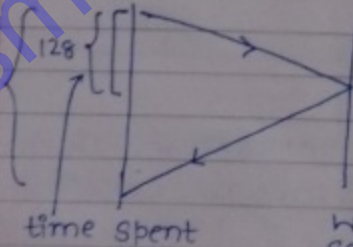 128
time spent